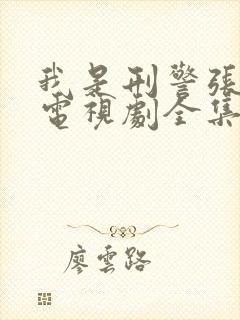 我是刑警張
電視劇全集
廖雲路